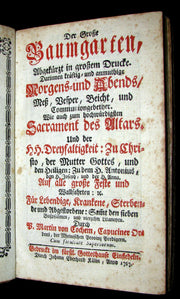 Der Große
Baumgarten,
Abgekürzt in grossem Drucke.
Darinnen kräftig- und anmuthige
Morgens- und Abends,
Meß, Vesper, Beicht, und
Communiongebether.
Wie auch zum hochwürdigsten
Sacrament des Altars,
Und der
H.H. Dreyfaltigkeit: Zu Chri-
sto, der Mutter Gottes, und
den Heiligen: Zu dem H. Antonius,
den H. Joseph, und der H. Anna.
Auf alle große Feste und
Wallfahrten: ꝛc.
Für Lebendige, Krankene, Sterben-
de und Abgestorbene: Samt den sieben
Durch
P. Martin von Cochem, Capuciner Or-
dens, der Rheinischen Provinz Predigern.
Cum facultate Superiorum.
Gedruckt im fürstl. Gotteshause Einsiedeln,
Durch Johann Eberhard Kälin, Anno 1763.